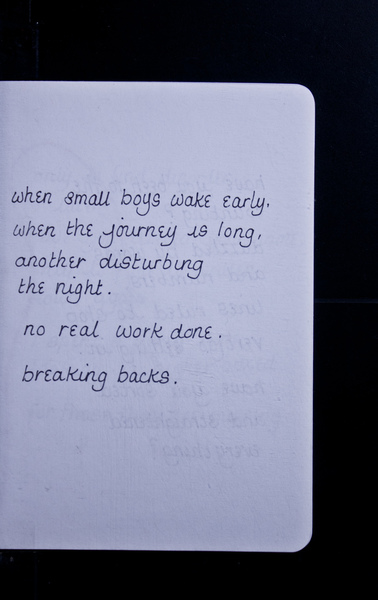 when small boys wake early,
when the journey is long,
another disturbing
the night.
no real work done.
breaking backs.